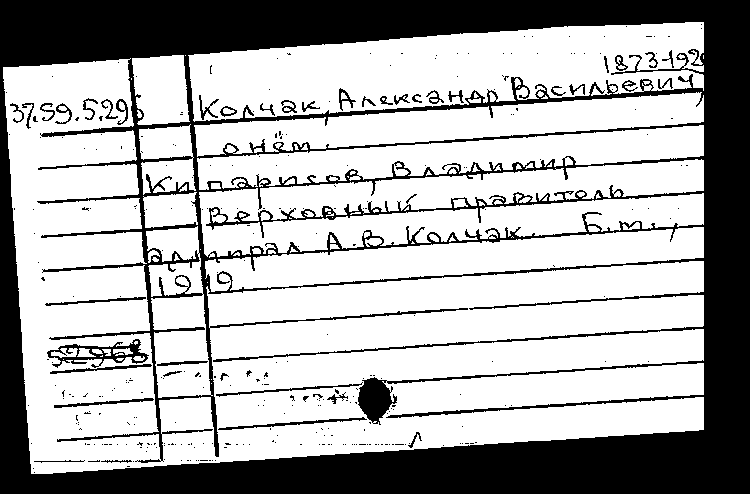 1873-192
37.59.5.296 Колчак, Александр Васильевич,
о нём.
Кипарисов, Владимир
Верховный правитель
адмирал А.В. Колчак. Б.м.,
1919.
52968